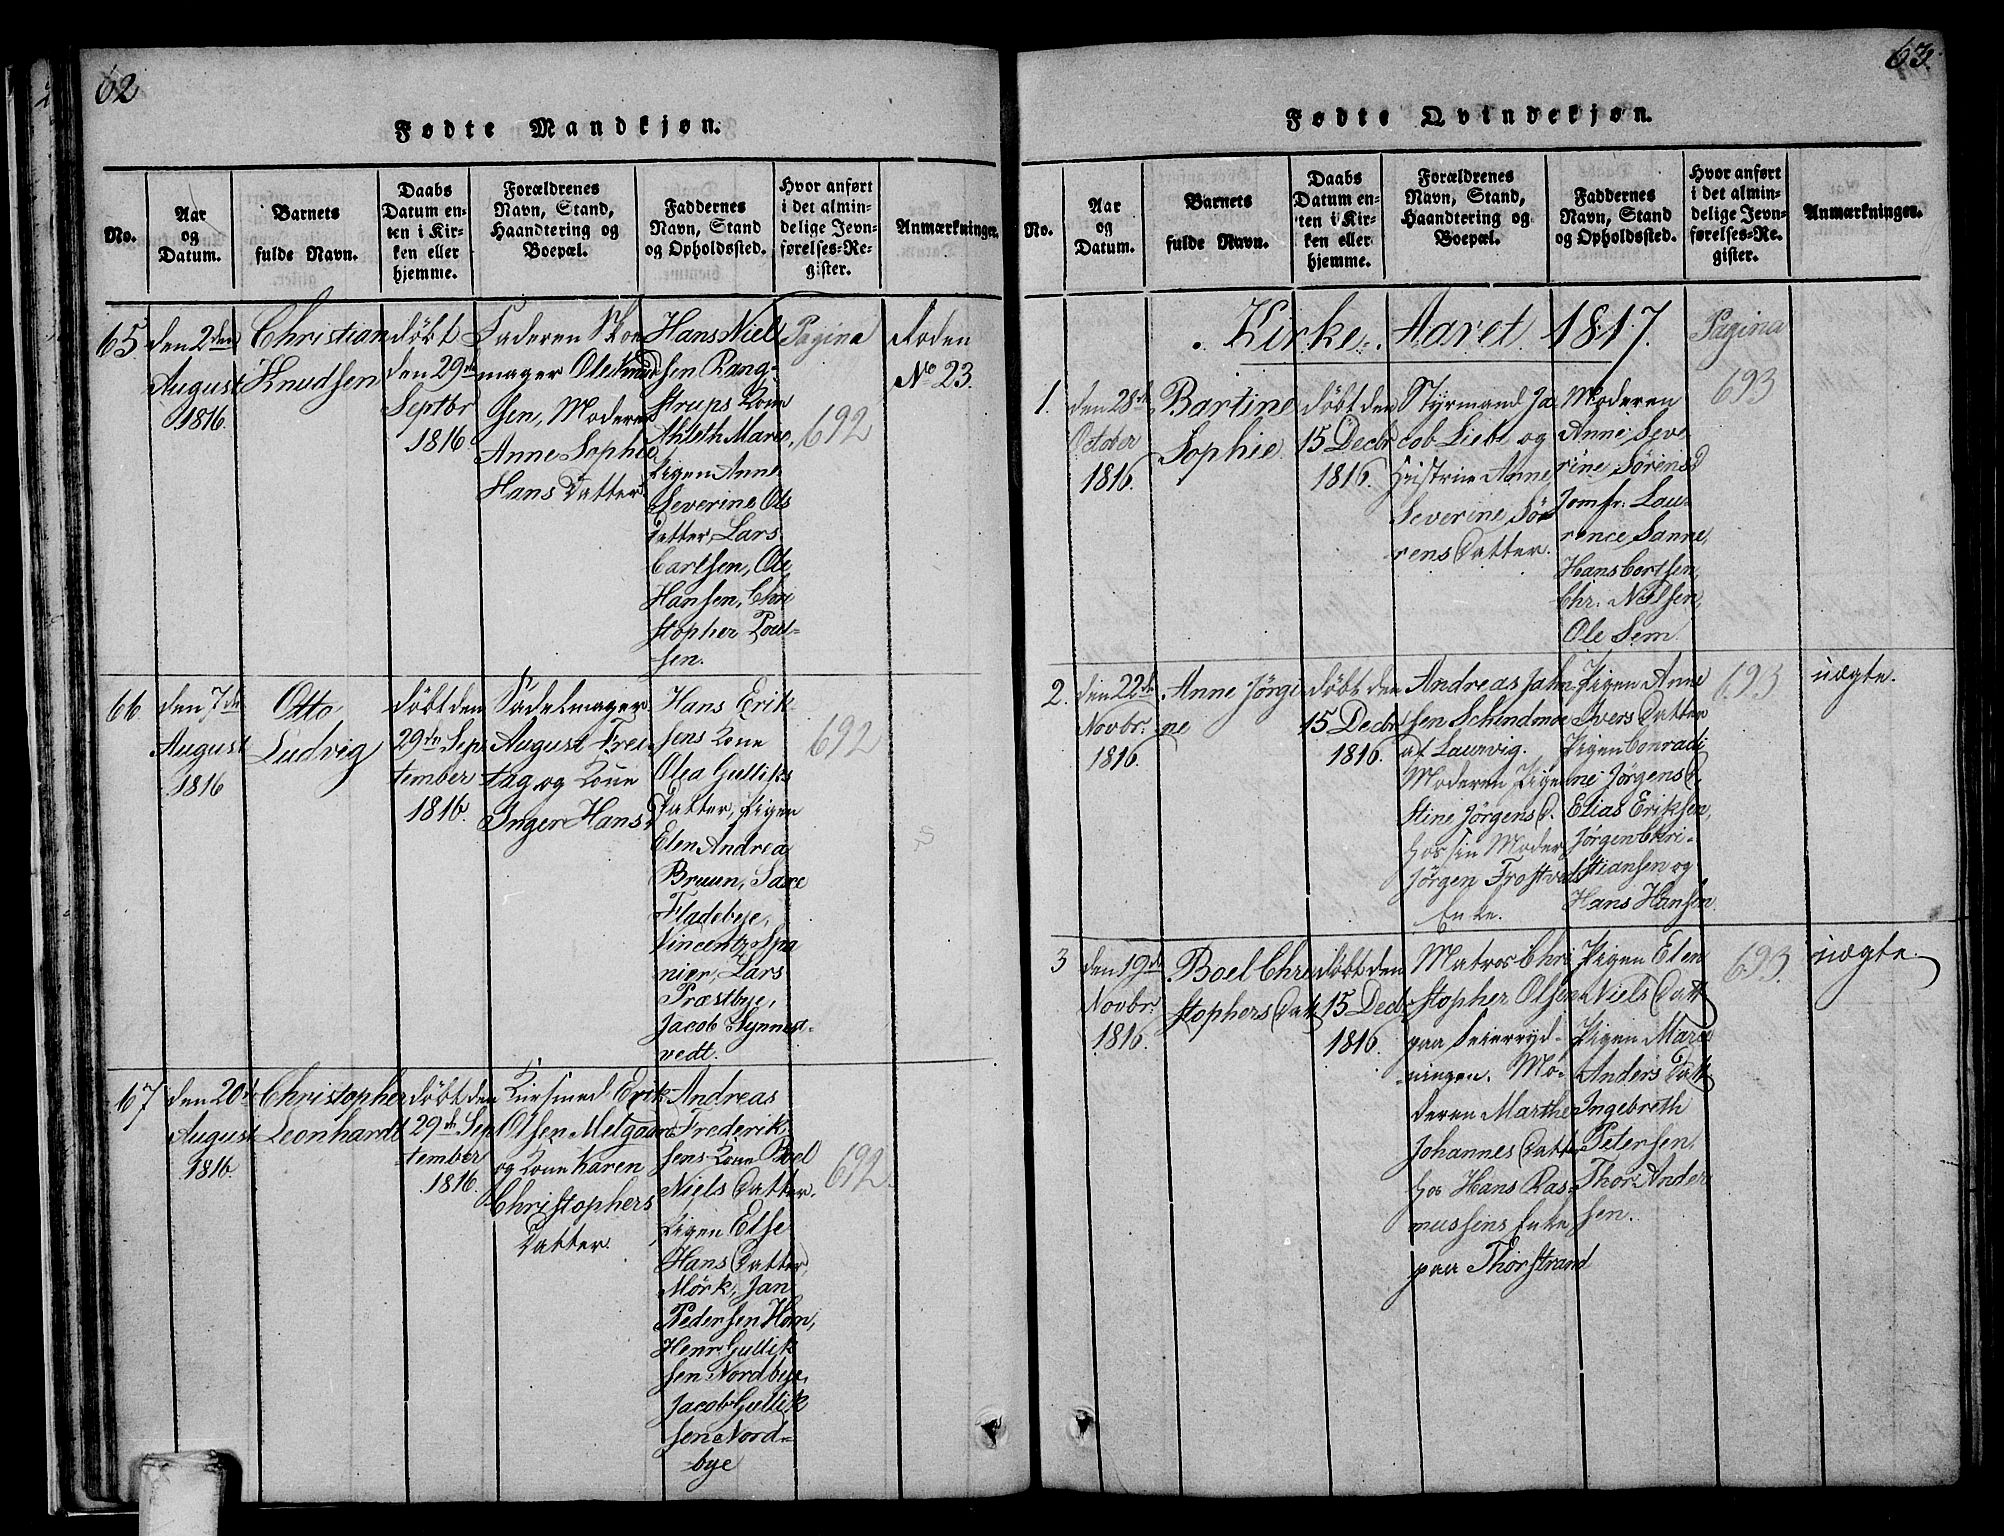 62
Fødte Mandkjøn.
No.
Aar
og
Datum.
Barnets
fulde Navn.
Daabs
Datum en-
ten i Kir-
ken eller
hjemme.
Forældrenes
Navn, Stand,
Haandtering og
Boepæl.
Faddernes
Navn, Stand
og Opholdssted.
Hvor anført
i det almin-
delige Jevn-
førelses-Re-
gister.
Anmærkninger.
65
den 2den
August
1816.
Christian
Knudsen
døbt
den 29de
Septbr
1816.
Faderen Skoe
mager Ole Knud
sen, Moderen
Anne Sophie
Hans Datter
Hans Niel
sen Rang-
strups Kone
Ahleth Marie,
Pigen Anne
Severine Ols
Datter, Lars
Carlsen, Ole
Hansen, Chri
stopher Poul-
sen.
Pagina
692
Roden
No 23.
66
den 7de
August
1816
Otto
Ludvig
døbt den
29de Sep
tember
1816.
Sadelmager
August Frei
tag og Kone
Inger Hans D
Hans Erik
sens Kone
Olea Gulliks
Datter, Pigen
Elen Andrea
Bruun, Saxe
Fladebye,
Vincentz Spa
nier, Lars
Præstbye,
Jacob Synnest-
vedt.
692
67
den 20de
August
1816.
Christopher
Leonhardt
døbt den
29de Sep
tember
1816.
Kursmed Erik
Olsen Melgaard
og Kone Karen
Christophers
Datter.
Andreas
Frederik
sens Kone Boel
Niels Datter.
Pigen Else
Hans Datter
Mörk, Jan
Pedersen Horn,
Henr Gullik
sen Nordbye,
Jacob Gullik
sen Nord-
bye
692.
63.
Fødte Qvindekjøn.
No.
Aar
og
Datum.
Barnets
fulde Navn.
Daabs
Datum en-
ten i Kir-
ken eller
hjemme.
Forældrenes
Navn, Stand,
Haandtering og
Boepæl.
Faddernes
Navn, Stand
og Opholdssted.
Hvor anført
i det almin-
delige Jevn-
førelses-Re-
gister.
Anmærkninger.
Kirke Aaret 1817.
Pagina
1.
den 28de
October
1816.
Bartine
Sophie.
døbt den
15 Decbr
1816.
Styrmand Ja
cob Liebe og
Hustrue Anne
Severine Sø
rens Datter.
Moderen
Anne Seve
rine Sørens D
Jomfr. Lau-
rence Sanne,
Hans Cortsen,
Chr. Nilsen,
Ole Sem
693
2.
den 22de
Novbr.
1816.
Anne Jørgi
ne
døbt den
15 Decbr
1816.
Andreas Jahn
sen Schindmoe
af Laurvig.
Moderen Pigen
Stine Jørgens D.
hos sin Moder
Jørgen Frostvads
Enke.
Pigen Anne
Ivers Datter
Pigen Conradi
ne Jørgens D.
Elias Eriksen,
Jørgen Chri-
stiansen og
Hans Hansen
693
uægte.
3
den 19de
Novbr.
1816.
Boel Chri
stophers Datt
døbt den
15 Decbr
1816.
Matros Chri
stopher Olsen
paa Seierryd-
ningen. Mo-
deren Marthe
Johannes Datter
hos Hans Ras
mussens Enke
paa Thorstrand
Pigen Elen
Niels Datt
Pigen Marie
Anders Datt
Ingebreth
Petersen,
Thor Ander
sen.
693
uægte.